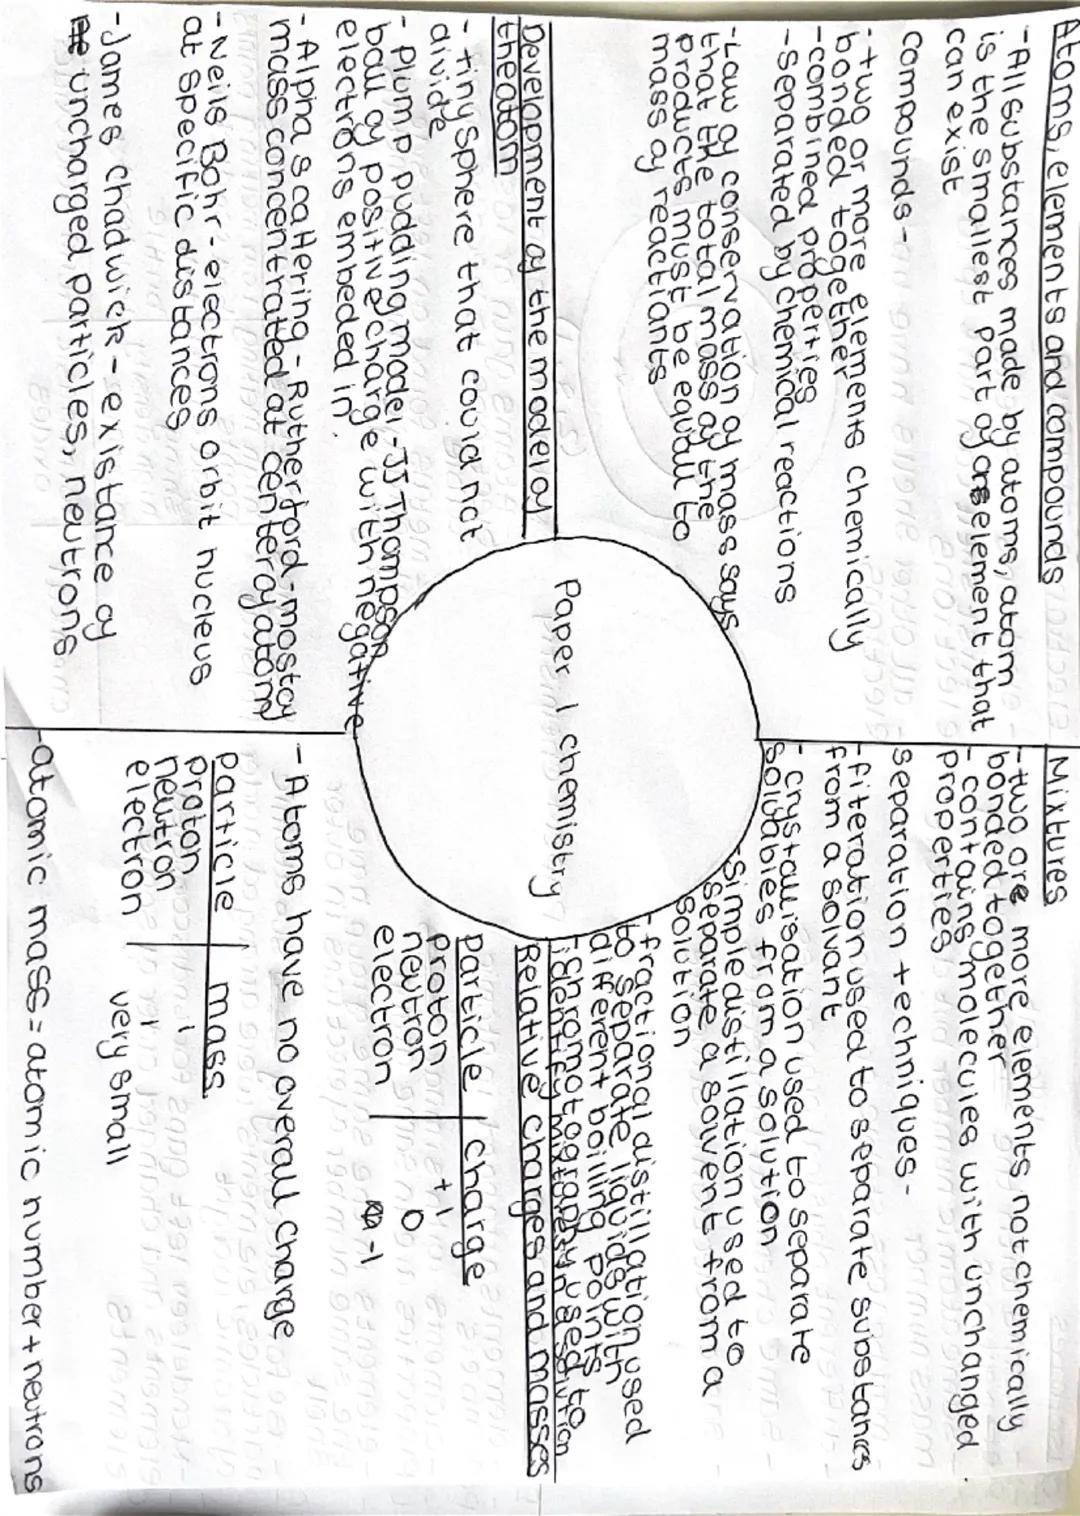 Atoms, elements and compounds
- All substances made by atoms, atom
is the smallest part of an element that
can exist
Compounds -
- two or more elements chemically
bonded together
- combined properties
- separated by chemical reactions
- Law of conservation of mass says
that the total mass of the
products must be equal to
mass of reactiants
Mixtures
- two ore more elements not chemically
bonded together
- contains molecules with unchanged
properties
separation techniques -
- filteration used to separate substances
from a solvant
- crystallisation used to separate
soluables from a solution
- simple distillation used to
separate a sovent from a
solution
- fractional distillation used
to separate liquids with
different boiling points
- Chromotography used to
identify mixtures in solution
Paper 1 chemistry
Development of the model of
the atom
- tiny sphere that could not
divide
- Plum pudding model - JJ Thompson
ball of positive charge with negative
electrons embeded in.
- Alpha scattering - Rutherford - most of
mass concentrated at center of atom
- Neils Bohr - electrons orbit nucleus
at specific distances
- James chadwick - existance of
uncharged particles, neutrons
Relative charges and masses
particle charge
proton +1
neutron 0
electron -1
- Atoms have no overall charge
particle mass
proton 1
neutron 1
electron very small
- atomic mass = atomic number + neutrons